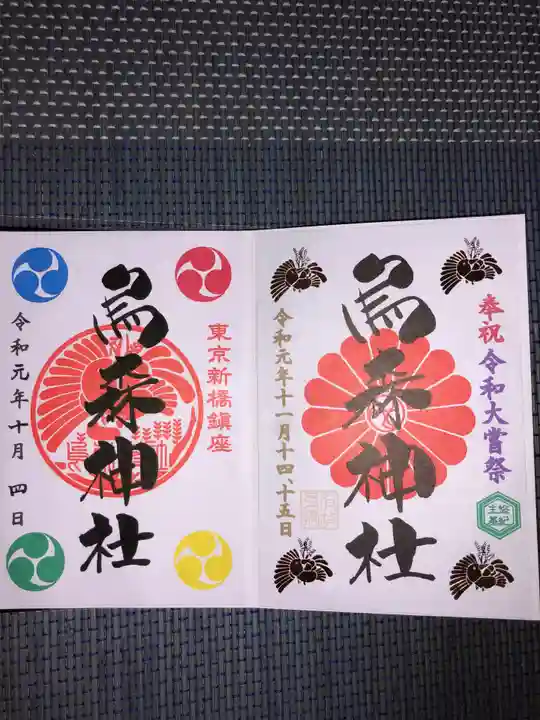 奉祝 令和大嘗祭
烏森神社
令和元年十一月十四、十五日
東京新橋鎮座
烏森神社
令和元年十月 四日